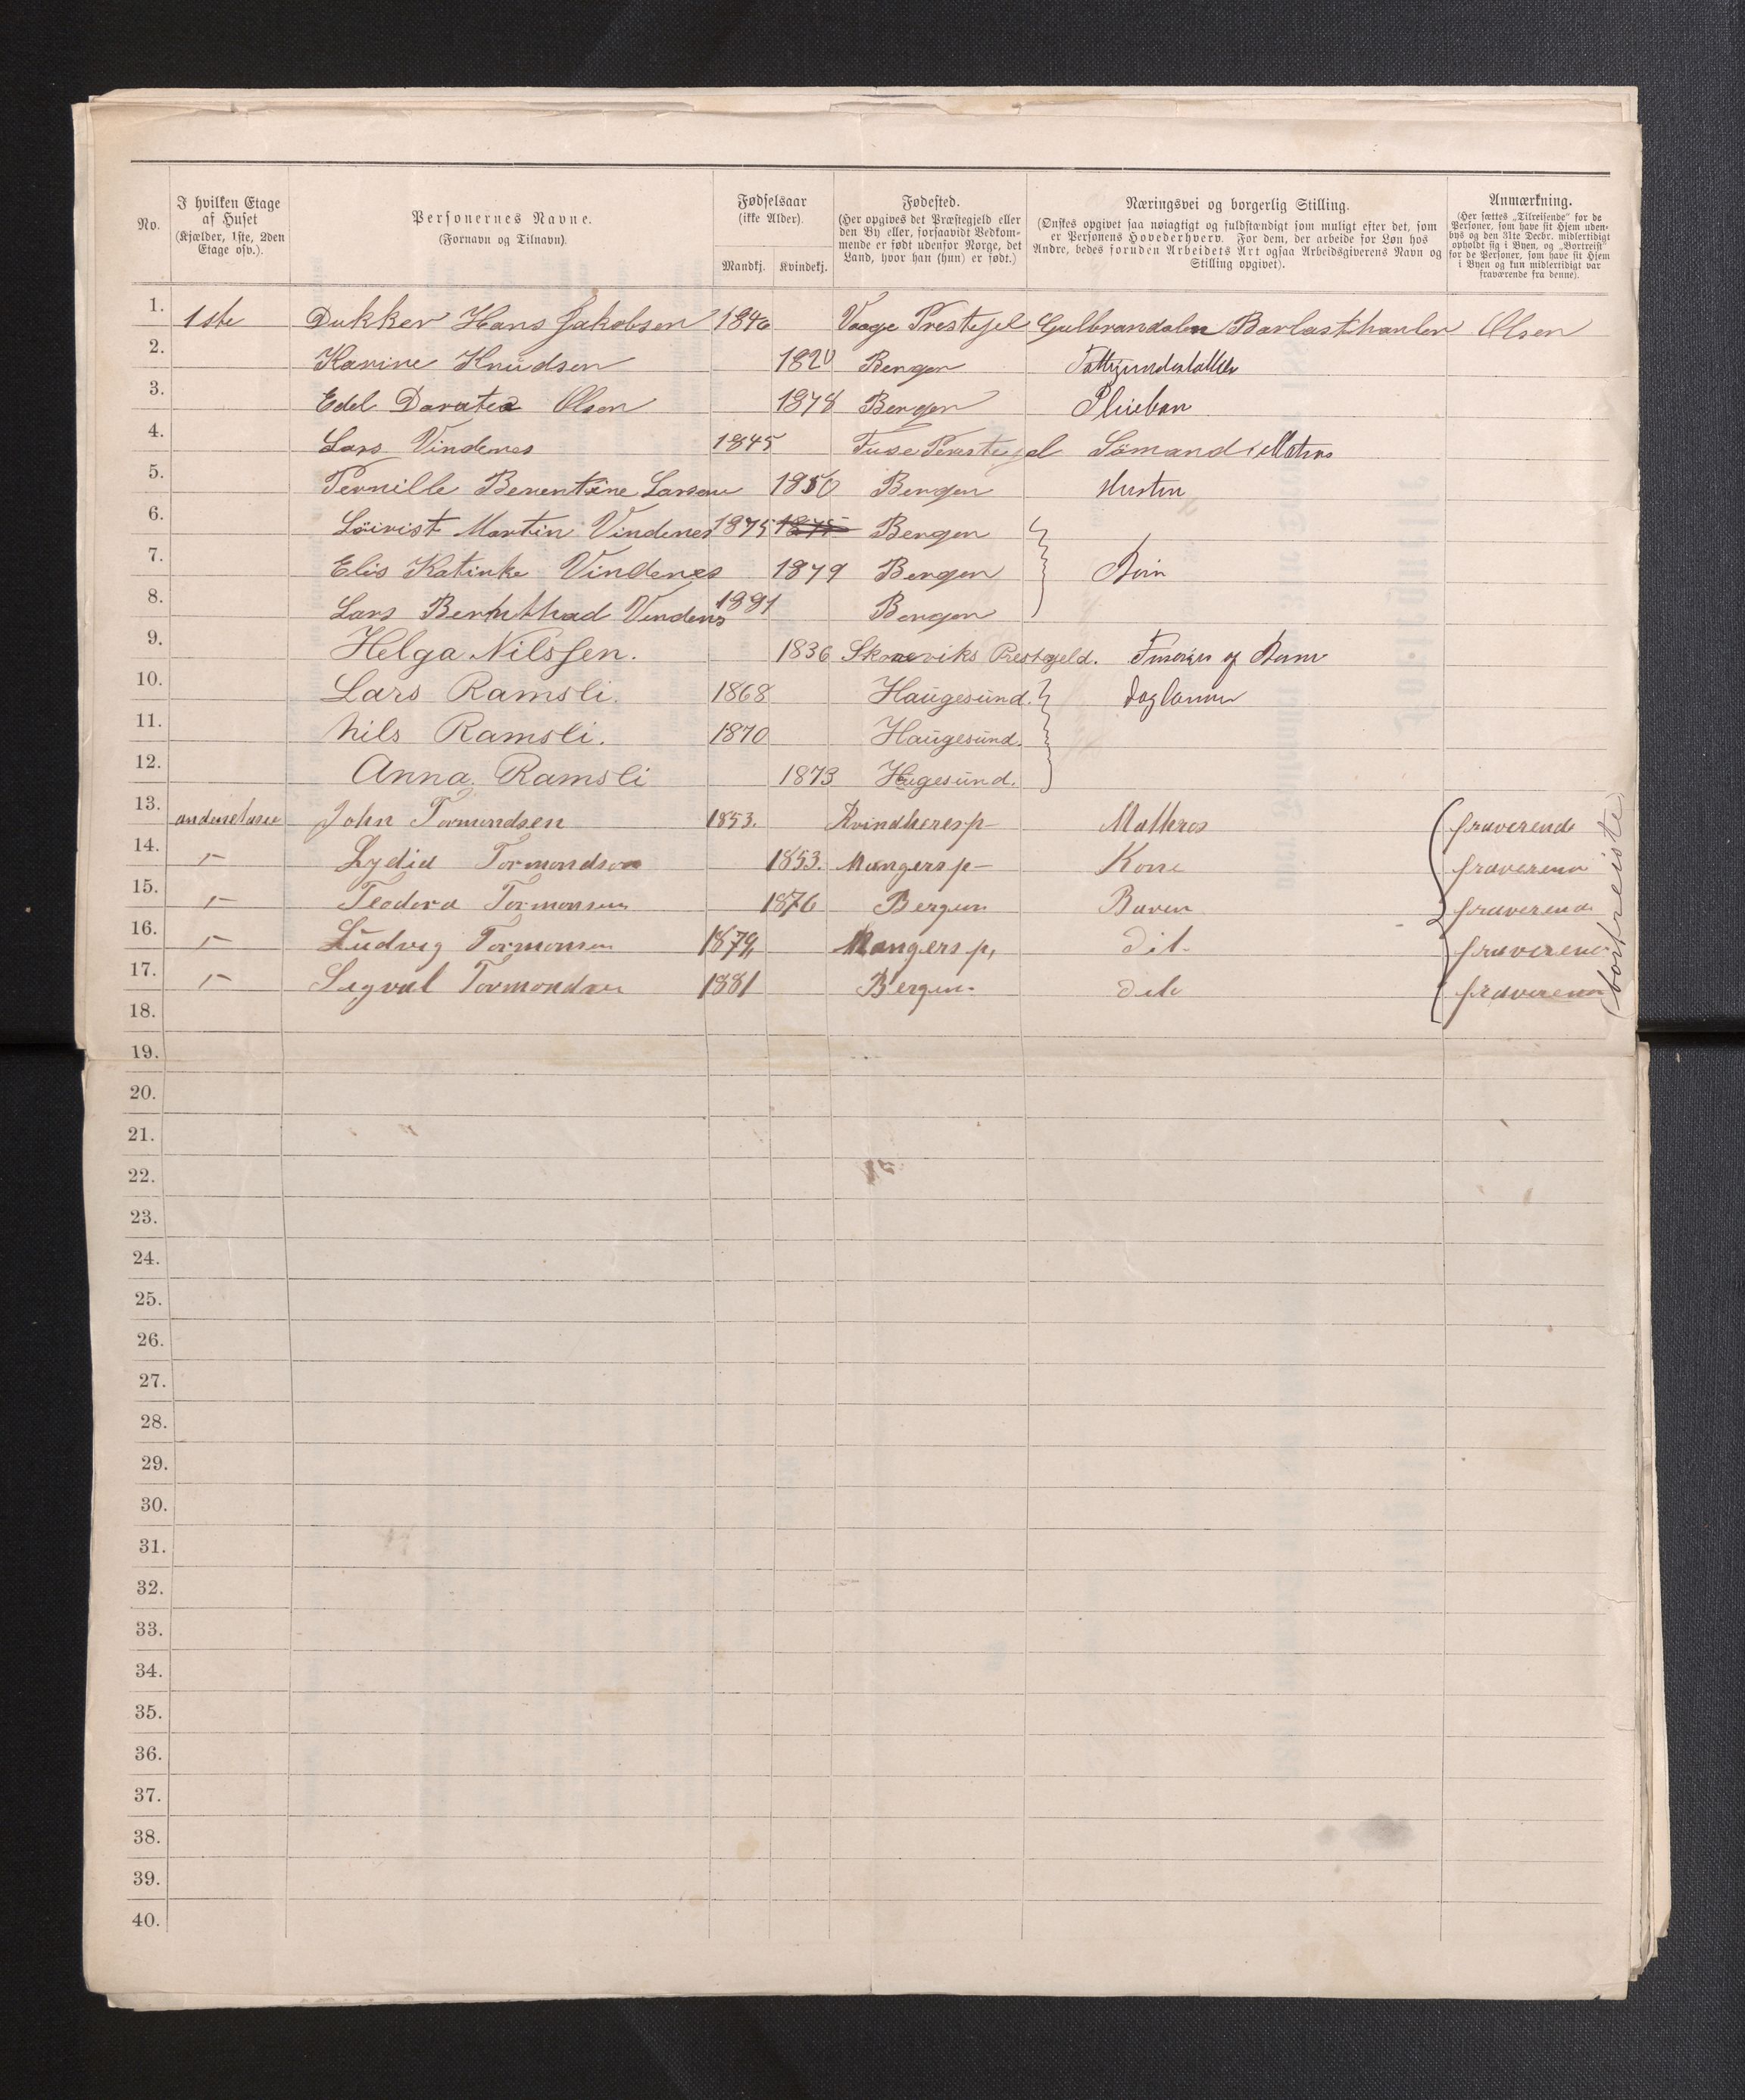 No.
I hvilken Etage
af Huset
(Kjælder, 1ste, 2den
Etage osv.).
Personernes Navne.
(Fornavn og Tilnavn).
Fødselsaar
(ikke Alder).
Mandkj. Kvindekj.
Fødested.
(Her opgives det Præstegjeld eller
den By eller, forsaavidt Vedkom-
mende er født udenfor Norge, det
Land, hvor han (hun) er født.)
Næringsvei og borgerlig Stilling.
(Ønskes opgivet saa nøiagtigt og fuldstændigt som muligt efter det, som
er Personens Hovederhverv. For dem, der arbeide for Løn hos
Andre, bedes foruden Arbeidets Art ogsaa Arbeidsgiverens Navn og
Stilling opgivet).
Anmærkning.
(Her sættes „Tilreisende" for de
Personer, som have sit Hjem uden-
bys og den 31te Decbr. midlertidigt
opholdt sig i Byen, og „Bortreist"
for de Personer, som have sit Hjem
i Byen og kun midlertidigt var
fraværende fra denne).
1. 1ste Dukker Hans Jakobsen 1846 Vaage Prestejel Gulbrandalen Barlasthanler Olsen
2. Karine Knudsen 1820 Bergen
3. Edel Doratea Olsen 1878 Bergen Pleieban
4. Lars Vindenes 1845 Fuse Prestejel Sömand Matros
5. Pernille Berentine Larsen 1850 Bergen Hustru
6. Martin Vindenes 1875 1875 Bergen
7. Elis Katinke Vindenes 1879 Bergen Börn
8. Lars Vindenes 1881 Bergen
9. Helga Nilssen. 1836 Skoneviks Prestegjeld.
10. Lars Ramsli. 1868 Haugesund.
11. Nils Ramsli. 1870 Haugesund.
12. Anna Ramsli 1873 Hugesund.
13. John Tormundsen 1853. Kvindheresp Mathros fraverende
14. Lydia Tormondsen 1853. Mangersp Kone fraverende
15. Teodora Tormonsen 1876 Bergen Baren fraverend
16. Ludvig Tormonsen 1879, Mangersp, dit fraverend
17. Sigval Tormondsen 1881 Bergen dito fraverend
(bortreiste)
18.
19.
20.
21.
22.
23.
24.
25.
26.
27.
28.
29.
30.
31.
32.
33.
34.
35.
36.
37.
38.
39.
40.